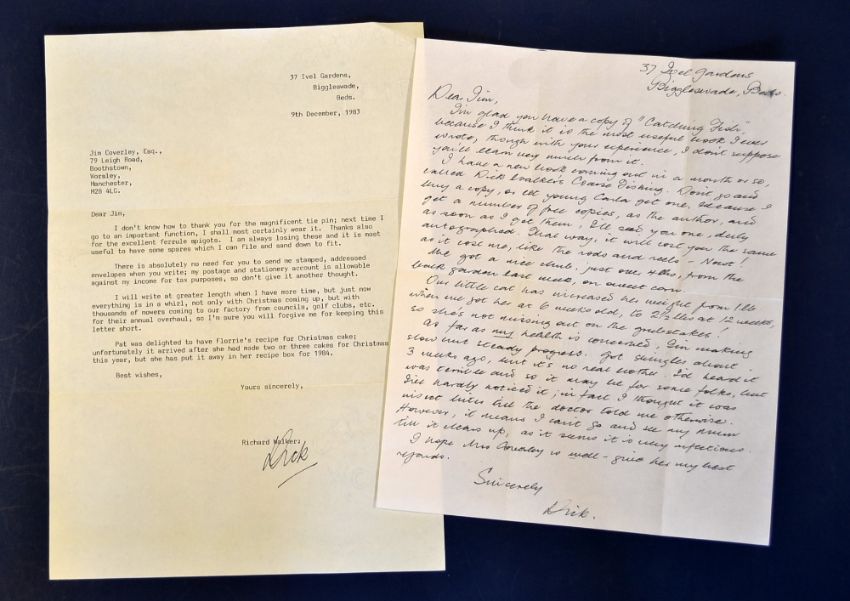 37 Ivel Gardens,
Biggleswade,
Beds.
9th December, 1983
Jim Coverley, Esq.,
79 Leigh Road,
Boothstown,
Worsley,
Manchester,
M28 4LG.
Dear Jim,
I don't know how to thank you for the magnificent tie pin; next time I
go to an important function, I shall most certainly wear it. Thanks also
for the excellent ferrule spigots. I am always losing these and it is most
useful to have some spares which I can file and sand down to fit.
There is absolutely no need for you to send me stamped, addressed
envelopes when you write; my postage and stationery account is allowable
against my income for tax purposes, so don't give it another thought.
I will write at greater length when I have more time, but just now
everything is in a whirl, not only with Christmas coming up, but with
thousands of mowers coming to our factory from councils, golf clubs, etc.
for their annual overhaul, so I'm sure you will forgive me for keeping this
letter short.
Pat was delighted to have Florrie's recipe for Christmas cake;
unfortunately it arrived after she had made two or three cakes for Christmas
this year, but she has put it away in her recipe box for 1984.
Best wishes,
Yours sincerely,
Richard Walker.
Dick
37 Ivel Gardens
Biggleswade, Beds.
Dear Jim,
I'm glad you have a copy of "Catching Fish"
because I think it is the most useful book I ever
wrote, though with your experience, I don't suppose
you'll learn very much from it.
I have a new book coming out in a month or so,
called Dick Walker's Coarse Fishing. Don't go and
buy a copy, or let young Carla get one, because I
get a number of free copies, as the author, and
as soon as I get them, I'll send you one, duly
autographed. That way, it will cost you the same
as it cost me, like the rods and reels - Nowt!
We got a nice chub, just over 4 lbs, from the
back garden last week, on sweet corn.
Our little cat has increased her weight from 1 lb
when we got her at 6 weeks old, to 2½ lbs at 12 weeks,
so she's not missing out on the grubstakes!
As far as my health is concerned, I'm making
slow but steady progress. Got shingles about
3 weeks ago, but it's no real bother. I'd heard it
was terrible and so it may be for some folks, but
I've hardly noticed it; in fact I thought it was
insect bites till the doctor told me otherwise.
However, it means I can't go and see my mum
till it clears up, as it seems it is very infectious.
I hope Mrs Coverley is well - give her my best
regards.
Sincerely
Dick.